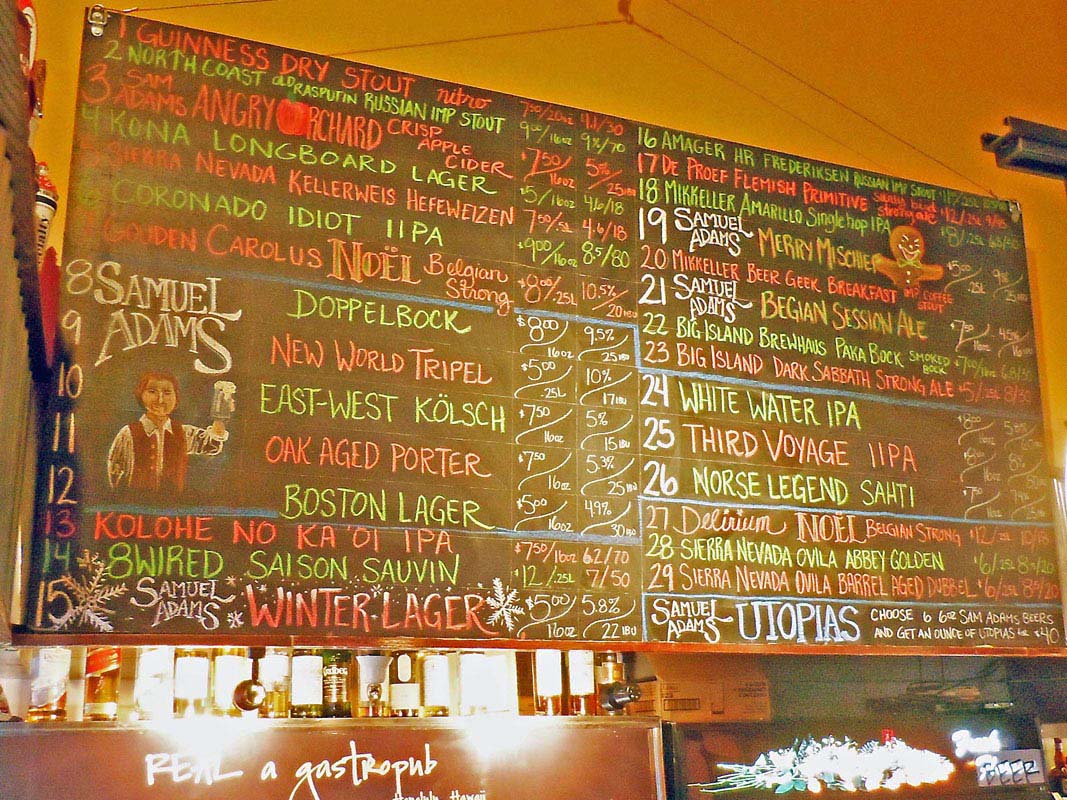 1 GUINNESS DRY STOUT nitro 7.50/20oz 4.1/30
2 NORTH COAST OLD RASPUTIN RUSSIAN IMP STOUT 9.00/16oz 9%/70
3 SAM ADAMS ANGRY ORCHARD CRISP APPLE CIDER $7.50/16oz 5%/25 IBU
4 KONA LONGBOARD LAGER $5/16oz 4.6/18
5 SIERRA NEVADA KELLERWEIS HEFEWEIZEN 7.50/.5L 4.6/18
6 CORONADO IDIOT IIPA $9.00/16oz 8.5/80
7 GOUDEN CAROLUS NOËL Belgian Strong $8.00/.25L 10.5%/20 IBU
8 SAMUEL ADAMS DOPPELBOCK $8.00/16oz 9.5%/25 IBU
9 NEW WORLD TRIPEL $5.00/.25L 10%/17 IBU
10 EAST-WEST KÖLSCH $7.50/16oz 5%/15 IBU
11 OAK AGED PORTER $7.50/16oz 5.3%/25 IBU
12 BOSTON LAGER $5.00/16oz 4.9%/30 IBU
13 KOLOHE NO KA 'OI IPA $7.50/16oz 6.2/70
14 8 WIRED SAISON SAUVIN $12/.25L 7/50
15 SAMUEL ADAMS WINTER LAGER $5.00/16oz 5.8%/22 IBU
16 AMAGER HR FREDERIKSEN RUSSIAN IMP STOUT
17 DE PROEF FLEMISH PRIMITIVE strong ale $12/.25L
18 MIKKELLER AMARILLO Single hop IPA $8/.25L
19 SAMUEL ADAMS MERRY MISCHIEF $5.00/.25L 9%
20 MIKKELLER BEER GEEK BREAKFAST IMP COFFEE STOUT
21 SAMUEL ADAMS BEGIAN SESSION ALE
22 BIG ISLAND BREWHAUS PAKA BOCK SMOKED BOCK
23 BIG ISLAND DARK SABBATH STRONG ALE $5/.25L 8/30
24 WHITE WATER IPA
25 THIRD VOYAGE IIPA
26 NORSE LEGEND SAHTI
27 Delirium NOËL BELGIAN STRONG $12/.25L
28 SIERRA NEVADA OVILA ABBEY GOLDEN $6/.25L
29 SIERRA NEVADA OVILA BARREL AGED DUBBEL $6/.25L
SAMUEL ADAMS UTOPIAS CHOOSE 6 6oz SAM ADAMS BEERS
AND GET AN OUNCE OF UTOPIAS for $40
REAL a gastropub
Honolulu, Hawaii
BEER